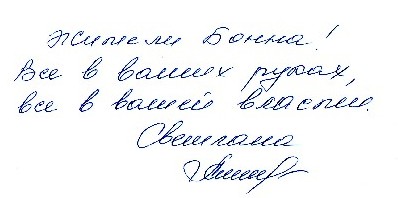 Жители Бонна!
Все в ваших руках,
все в вашей власти.
Светлана